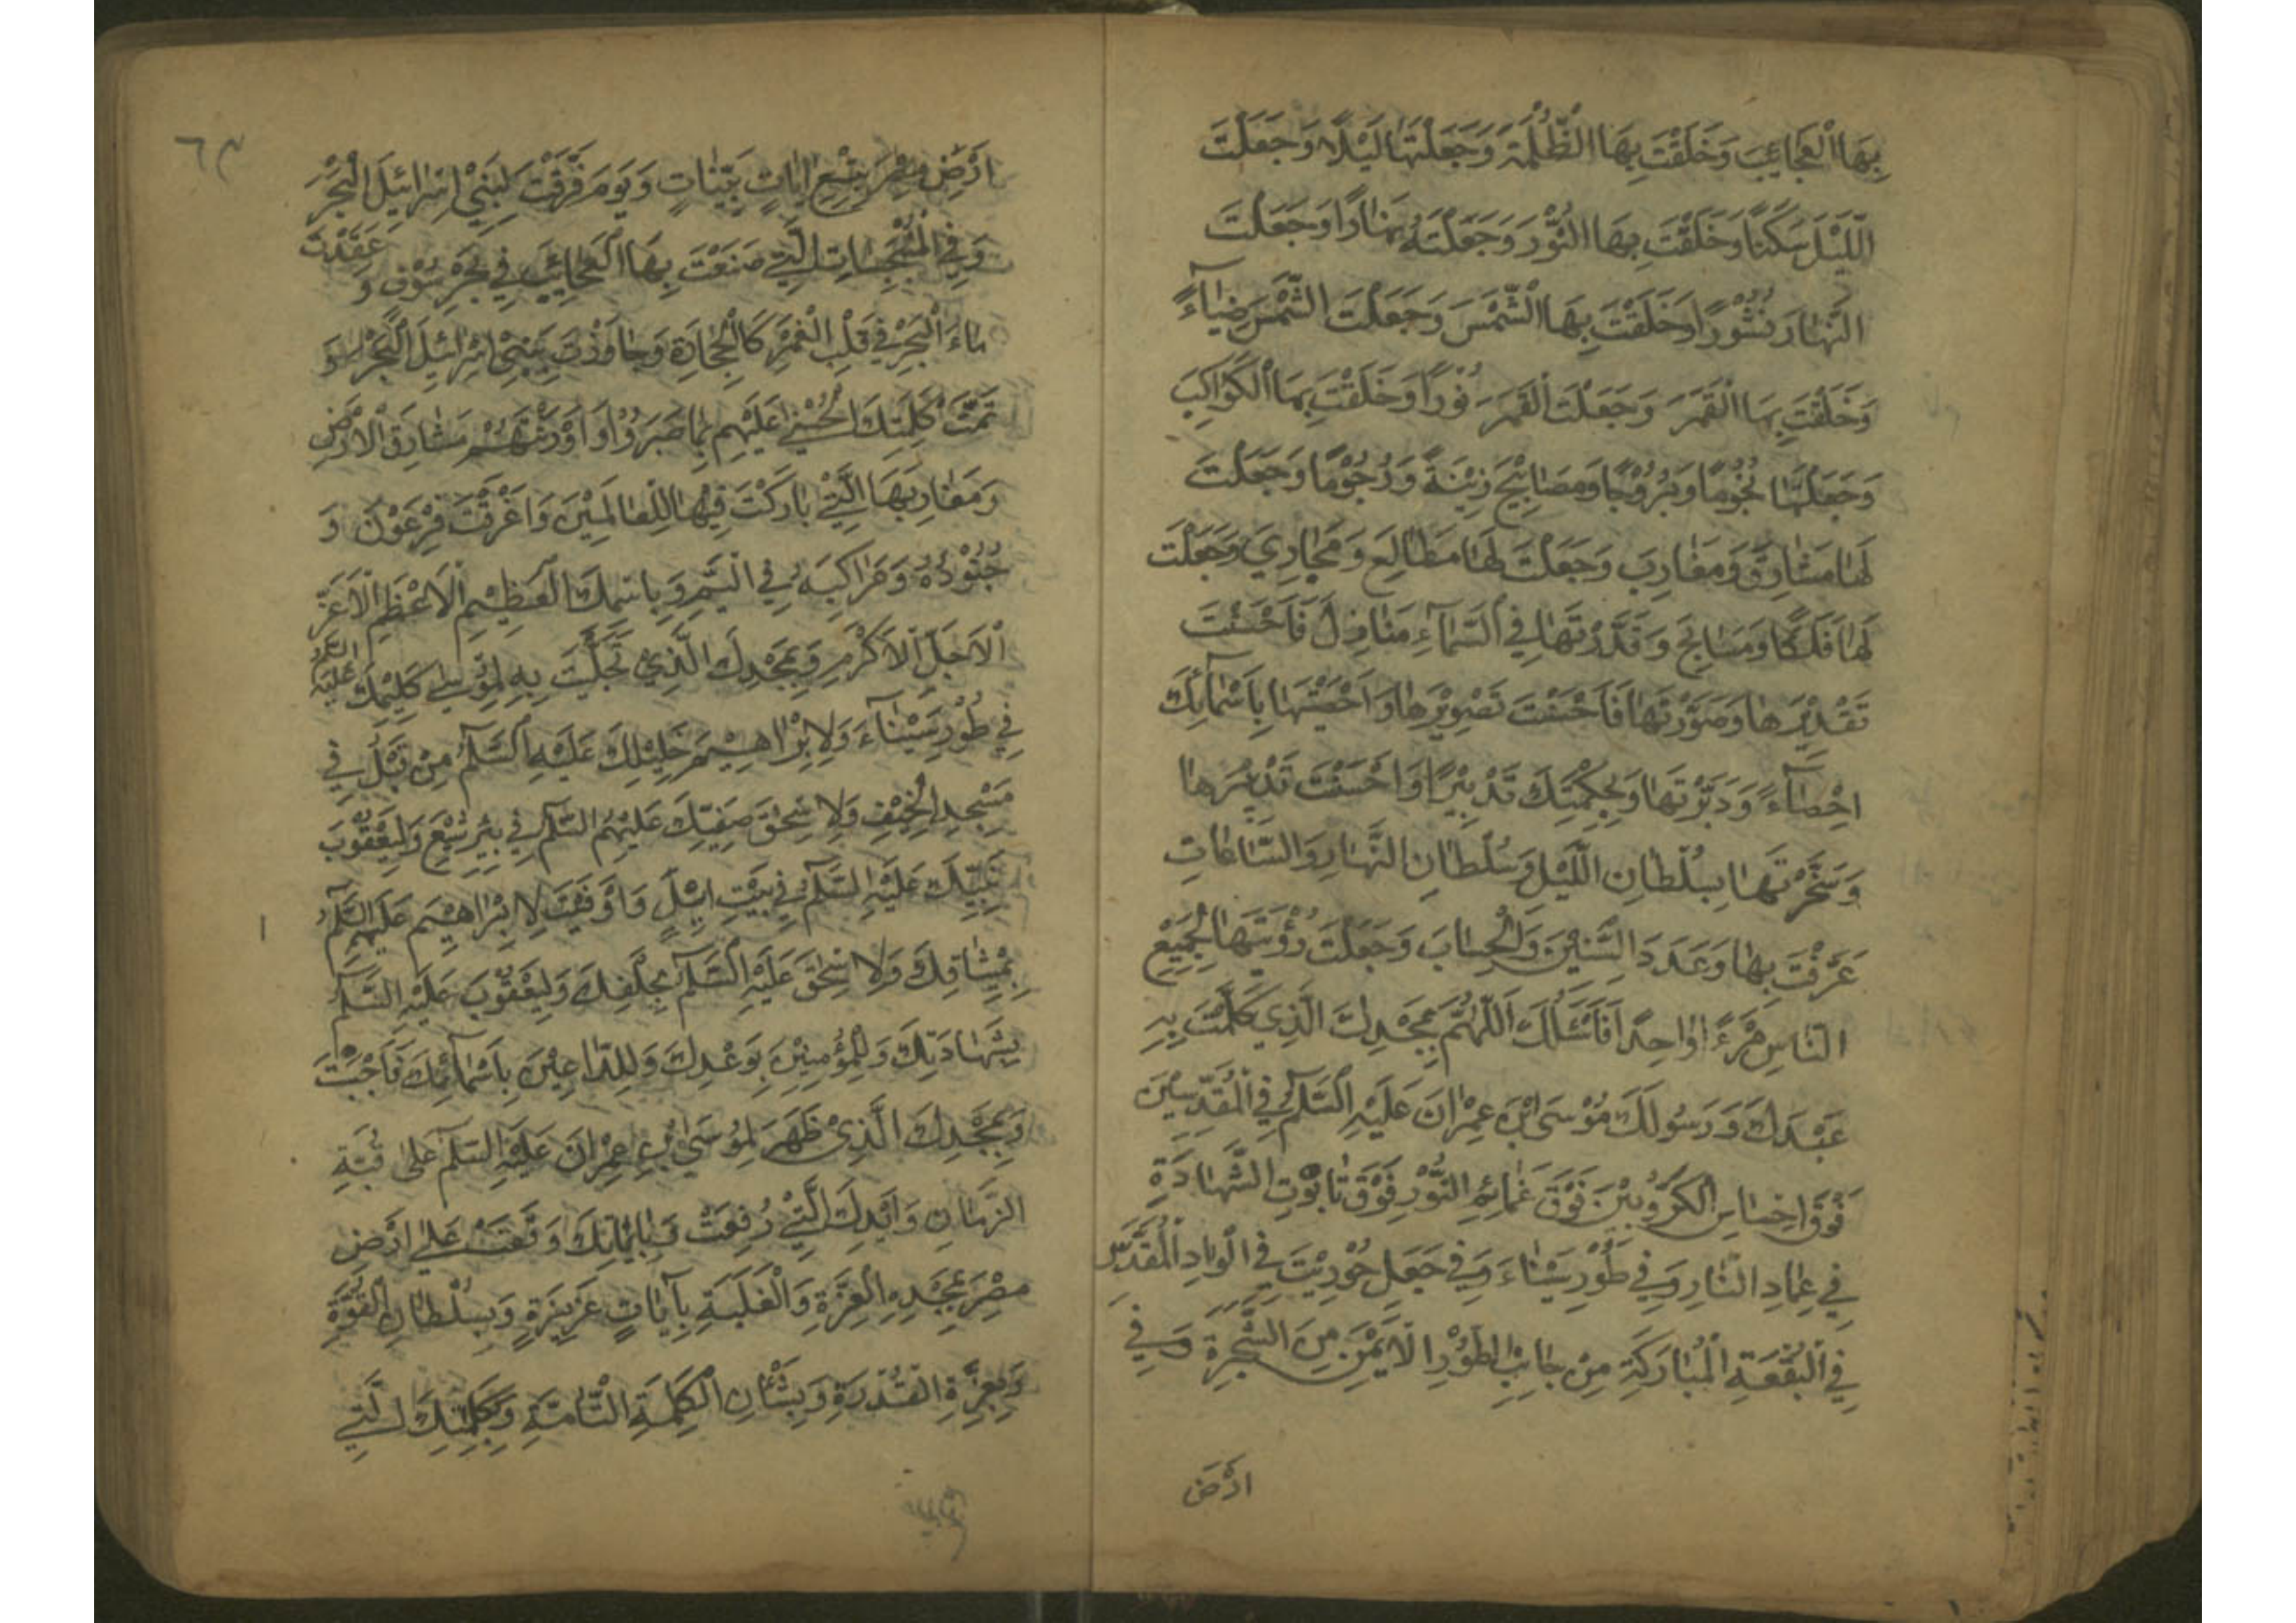 بِهَا الْعَجَائِبَ وَخَلَقْتَ بِهَا الظُّلْمَةَ وَجَعَلْتَهَا لَيْلًا وَجَعَلْتَ
اللَّيْلَ سَكَنًا وَخَلَقْتَ بِهَا النُّوْرَ وَجَعَلْتَهُ نَهَارًا وَجَعَلْتَ
النَّهَارَ نُشُوْرًا وَخَلَقْتَ بِهَا الشَّمْسَ وَجَعَلْتَ الشَّمْسَ ضِيَآءً
وَخَلَقْتَ بِهَا الْقَمَرَ وَجَعَلْتَ الْقَمَرَ نُوْرًا وَخَلَقْتَ بِهَا الْكَوَاكِبَ
وَجَعَلْتَهَا نُجُوْمًا وَبُرُوْجًا وَمَصَابِيْحَ وَزِيْنَةً وَرُجُوْمًا وَجَعَلْتَ
لَهَا مَشَارِقَ وَمَغَارِبَ وَجَعَلْتَ لَهَا مَطَالِعَ وَمَجَارِيَ وَجَعَلْتَ
لَهَا فَلَكًا وَمَسَابِحَ وَقَدَّرْتَهَا فِي السَّمَآءِ مَنَازِلَ فَاَحْسَنْتَ
تَقْدِيْرَهَا وَصَوَّرْتَهَا فَاَحْسَنْتَ تَصْوِيْرَهَا وَاَحْصَيْتَهَا بِاَسْمَآئِكَ
اِحْصَآءً وَدَبَّرْتَهَا وَبِحِكْمَتِكَ تَدْبِيْرًا وَاَحْسَنْتَ تَدْبِيْرَهَا
وَسَخَّرْتَهَا بِسُلْطَانِ اللَّيْلِ وَسُلْطَانِ النَّهَارِ وَالسَّاعَاتِ
عَرَّفْتَ بِهَا وَعَدَدَ السِّنِيْنَ وَالْحِسَابَ وَجَعَلْتَ رُؤْيَتَهَا لِجَمِيْعِ
النَّاسِ مَرْءًا وَاحِدًا فَاَسْئَلُكَ اَللّٰهُمَّ بِمَجْدِكَ الَّذِي كَلَّمْتَ بِهِ
عَبْدَكَ وَرَسُولَكَ مُوْسَى ابْنَ عِمْرَانَ عَلَيْهِ السَّلَامُ فِي الْمُقَدَّسِيْنَ
فَوْقَ اِحْسَاسِ الْكَرُّوبِيْنَ فَوْقَ غَمَائِمِ النُّوْرِ فَوْقَ تَابُوْتِ الشَّهَادَةِ
فِي عِمَادِ النَّارِ وَفِي طُوْرِ سَيْنَاءَ وَفِي جَبَلِ حُوْرِيْثَ فِي الْوَادِ الْمُقَدَّسِ
فِي الْبُقْعَةِ الْمُبَارَكَةِ مِنْ جَانِبِ الطُّوْرِ الْاَيْمَنِ مِنَ الشَّجَرَةِ وَفِي
اَرْضِ
اَرْضِ مِصْرَ بِتِسْعِ اٰيَاتٍ بَيِّنَاتٍ وَيَوْمَ فَرَقْتَ لِبَنِيْ اِسْرَائِيلَ الْبَحْرَ
وَفِي الْمُنْبَجِسَاتِ الَّتِي صَنَعْتَ بِهَا الْعَجَائِبَ فِي بَحْرِ سُوْفٍ وَ عَقَدْتَ
مَاءَ الْبَحْرِ فِي قَلْبِ الْغَمْرِ كَالْحِجَارَةِ وَجَاوَزْتَ بِبَنِيْ اِسْرَائِيلَ الْبَحْرَ وَ
تَمَّتْ كَلِمَتُكَ الْحُسْنٰى عَلَيْهِمْ بِمَا صَبَرُوْا وَاَوْرَثْتَهُمْ مَشَارِقَ الْاَرْضِ
وَمَغَارِبَهَا الَّتِيْ بَارَكْتَ فِيْهَا لِلْعَالَمِيْنَ وَاَغْرَقْتَ فِرْعَوْنَ وَ
جُنُوْدَهُ وَمَرَاكِبَهُ فِي الْيَمِّ وَبِاسْمِكَ الْعَظِيْمِ الْاَعْظَمِ الْاَعَزِّ
الْاَجَلِّ الْاَكْرَمِ وَبِمَجْدِكَ الَّذِيْ تَجَلَّيْتَ بِهِ لِمُوْسٰى كَلِيْمِكَ عَلَيْهِ السَّلَامُ
فِي طُوْرِ سَيْنَآءَ وَلِاِبْرَاهِيْمَ خَلِيْلِكَ عَلَيْهِ السَّلَامُ مِنْ قَبْلُ فِي
مَسْجِدِ الْخَيْفِ وَلِاِسْحٰقَ صَفِيِّكَ عَلَيْهِمُ السَّلَامُ فِي بِئْرِ شِيَعٍ وَلِيَعْقُوْبَ
نَبِيِّكَ عَلَيْهِ السَّلَامُ فِي بَيْتِ اِيْلٍ وَاَوْفَيْتَ لِاِبْرَاهِيْمَ عَلَيْهِ السَّلَامُ
بِمِيْثَاقِكَ وَلِاِسْحٰقَ عَلَيْهِ السَّلَامُ بِحَلْفِكَ وَلِيَعْقُوْبَ عَلَيْهِ السَّلَامُ
بِشَهَادَتِكَ وَلِلْمُؤْمِنِيْنَ بِوَعْدِكَ وَلِلدَّاعِيْنَ بِاَسْمَآئِكَ فَاَجَبْتَ
وَبِمَجْدِكَ الَّذِيْ ظَهَرَ لِمُوْسَى بْنِ عِمْرَانَ عَلَيْهِ السَّلَامُ عَلٰى قُبَّةِ
الزَّمَانِ وَاَيْدِكَ الَّتِيْ رُفِعَتْ وَبِاٰيَاتِكَ وَقَعَتْ عَلٰى اَرْضِ
مِصْرَ بِمَجْدِهِ الْعِزَّةِ وَالْغَلَبَةِ بِآيَاتٍ عَزِيْزَةٍ وَبِسُلْطَانِ الْقُوَّةِ
وَبِعِزَّةِ الْقُدْرَةِ وَبِشَأْنِ الْكَلِمَةِ التَّامَّةِ وَبِكَلِمَتِكَ الَّتِي